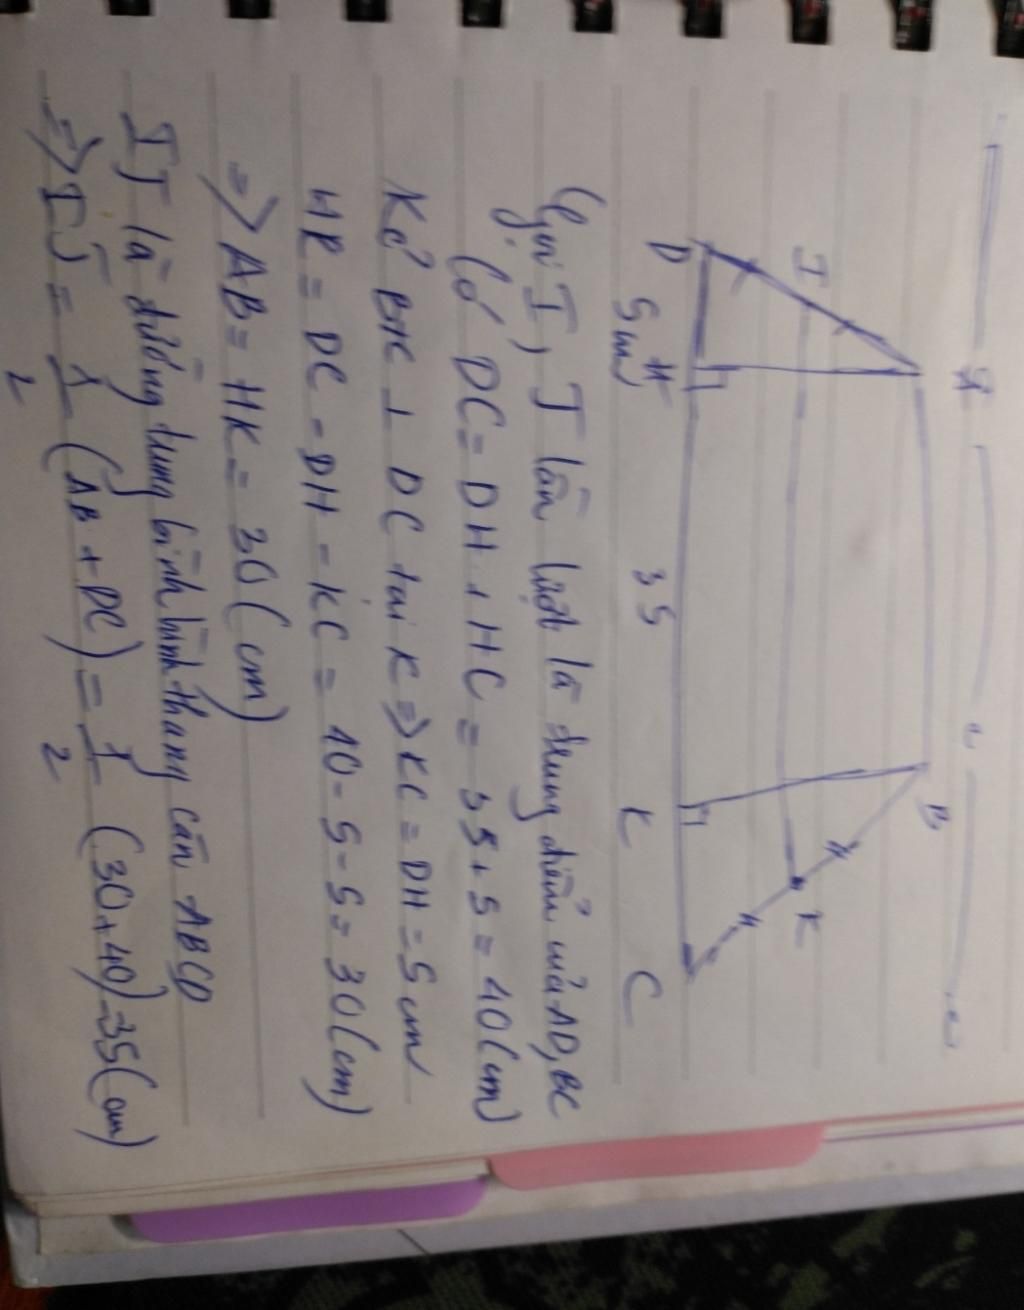 A B
I K
D H K C
5cm 35
Gọi I, J lần lượt là trung điểm của AD, BC
Có DC = DH + HC = 35 + 5 = 40 (cm)
Kẻ BK ⊥ DC tại K => KC = DH = 5 cm
HK = DC - DH - KC = 40 - 5 - 5 = 30 (cm)
=> AB = HK = 30 (cm)
IJ là đường trung bình hình thang cân ABCD
=> IJ = 1/2 (AB + DC) = 1/2 (30 + 40) = 35 (cm)